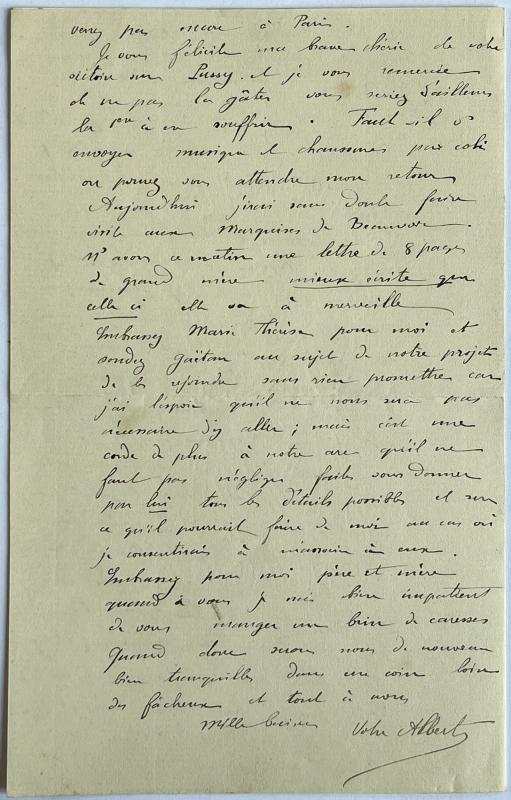 verez pas encore à Paris.
Je vous félicite ma brave chérie de votre
victoire sur Pussy et je vous remercie
de ne pas la gâter vous seriez d'ailleurs
la 1ère à en souffrir. Faut-il vs
envoyer musique et chaussures par colis
ou pouvez vous attendre mon retour
Aujourd'hui j'irai sans doute faire
visite aux Marquises de Beauvoir.
Ns avons ce matin une lettre de 8 pages
de grand mère mieux écrite que
celle ci elle va à merveille
Embrassez Marie Thérèse pour moi et
sondez Gaëtan au sujet de notre projet
de les rejoindre sans rien promettre car
j'ai l'espoir qu'il ne nous sera pas
nécessaire d'y aller; mais c'est une
corde de plus à notre arc qu'il ne
faut pas négliger faites vous donner
par lui tous les détails possibles et sur
ce qu'il pourrait faire de moi au cas où
je consentirais à m'associer à eux.
Embrassez pour moi père et mère
quand à vous je suis bien impatient
de vous manger un brin de caresses
Quand donc serons nous de nouveau
bien tranquilles dans un coin loin
des fâcheux et tout à nous
Mille baisers Votre Albert